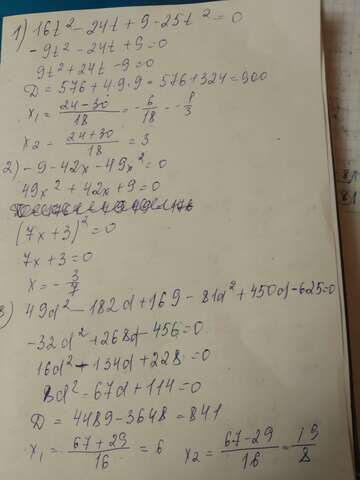 1) 16t² - 24t + 9 - 25t² = 0
- 9t² - 24t + 9 = 0
9t² + 24t - 9 = 0
D = 576 + 4·9·9 = 576 + 324 = 900
x₁ = (24 - 30)/18 = - 6/18 = -
x₂ = (24 + 30)/18 = 3
2) - 9 - 42x - 49x² = 0
49x² + 42x + 9 = 0
(7x + 3)² = 0
7x + 3 = 0
x = - 3/7
3) 49d² - 182d + 169 - 81d² + 450d - 625 = 0
- 32d² + 268d - 456 = 0
16d² - 134d + 228 = 0
8d² - 67d + 114 = 0
D = 4489 - 3648 = 841
x₁ = (67 + 29)/16 = 6 x₂ = (67 - 29)/16 = 19/8